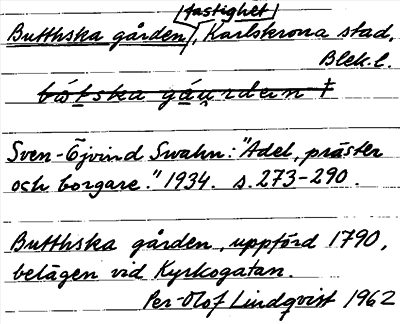 fastighet
Butthska gården, Karlskrona stad,
Blek.l.
Sven-Öjvind Swahn: "Adel, präster
och borgare." 1934. s. 273-290.
Butthska gården, uppförd 1790,
belägen vid Kyrkogatan.
Per-Olof Lindqvist 1962